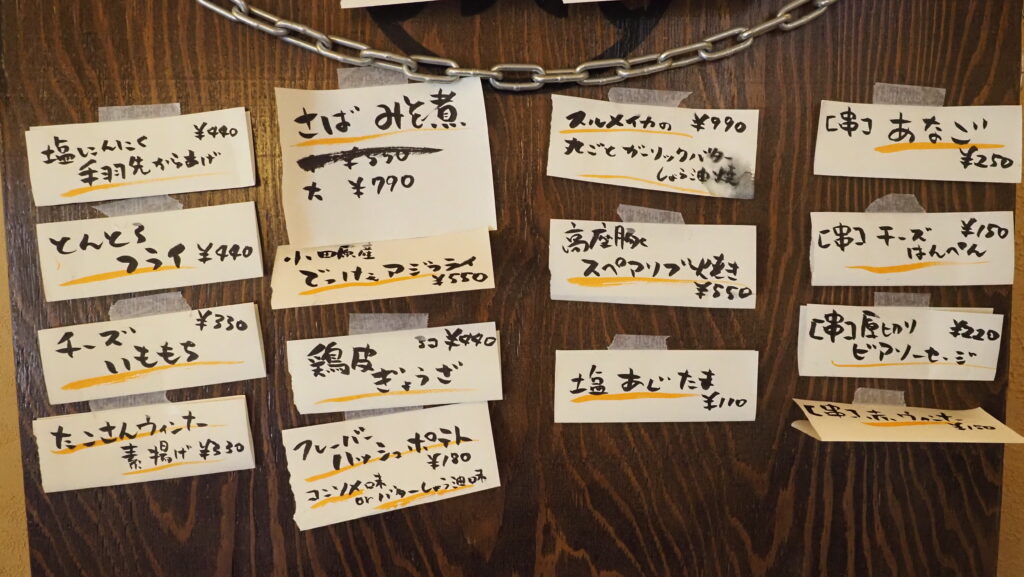 塩にんにく ¥440
手羽先から揚げ
とんとろ
フライ ¥440
チーズ ¥330
いももち
たこさんウィンナー
素揚げ ¥330
さば みそ煮
¥550
大 ¥790
小田原産
でっけぇアジフライ
¥550
鶏皮 5コ ¥440
ぎょうざ
フレーバー
ハッシュポテト
¥180
コンソメ味
orバターしょう油味
スルメイカの ¥990
丸ごとガーリックバター
しょう油焼
高座豚
スペアリブ焼き
¥550
塩 あじたま
¥110
[串] あなご
¥250
[串] チーズ ¥150
はんぺん
[串] ¥220
ビアソーセージ
[串] ウィンナー
¥150